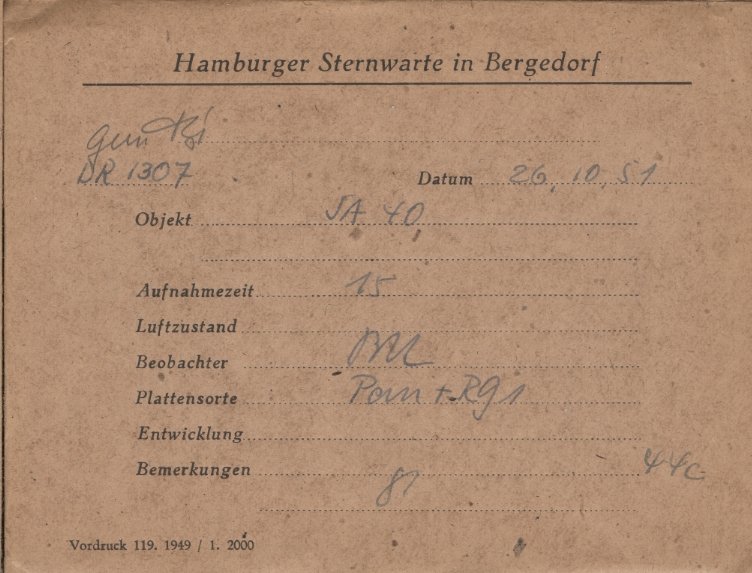 Hamburger Sternwarte in Bergedorf
gem
DR 1307
Datum 26.10.51
Objekt SA 40
Aufnahmezeit 15
Luftzustand
Beobachter
Plattensorte Pan + Rg1
Entwicklung
Bemerkungen 44c
Vordruck 119. 1949 / 1. 2000